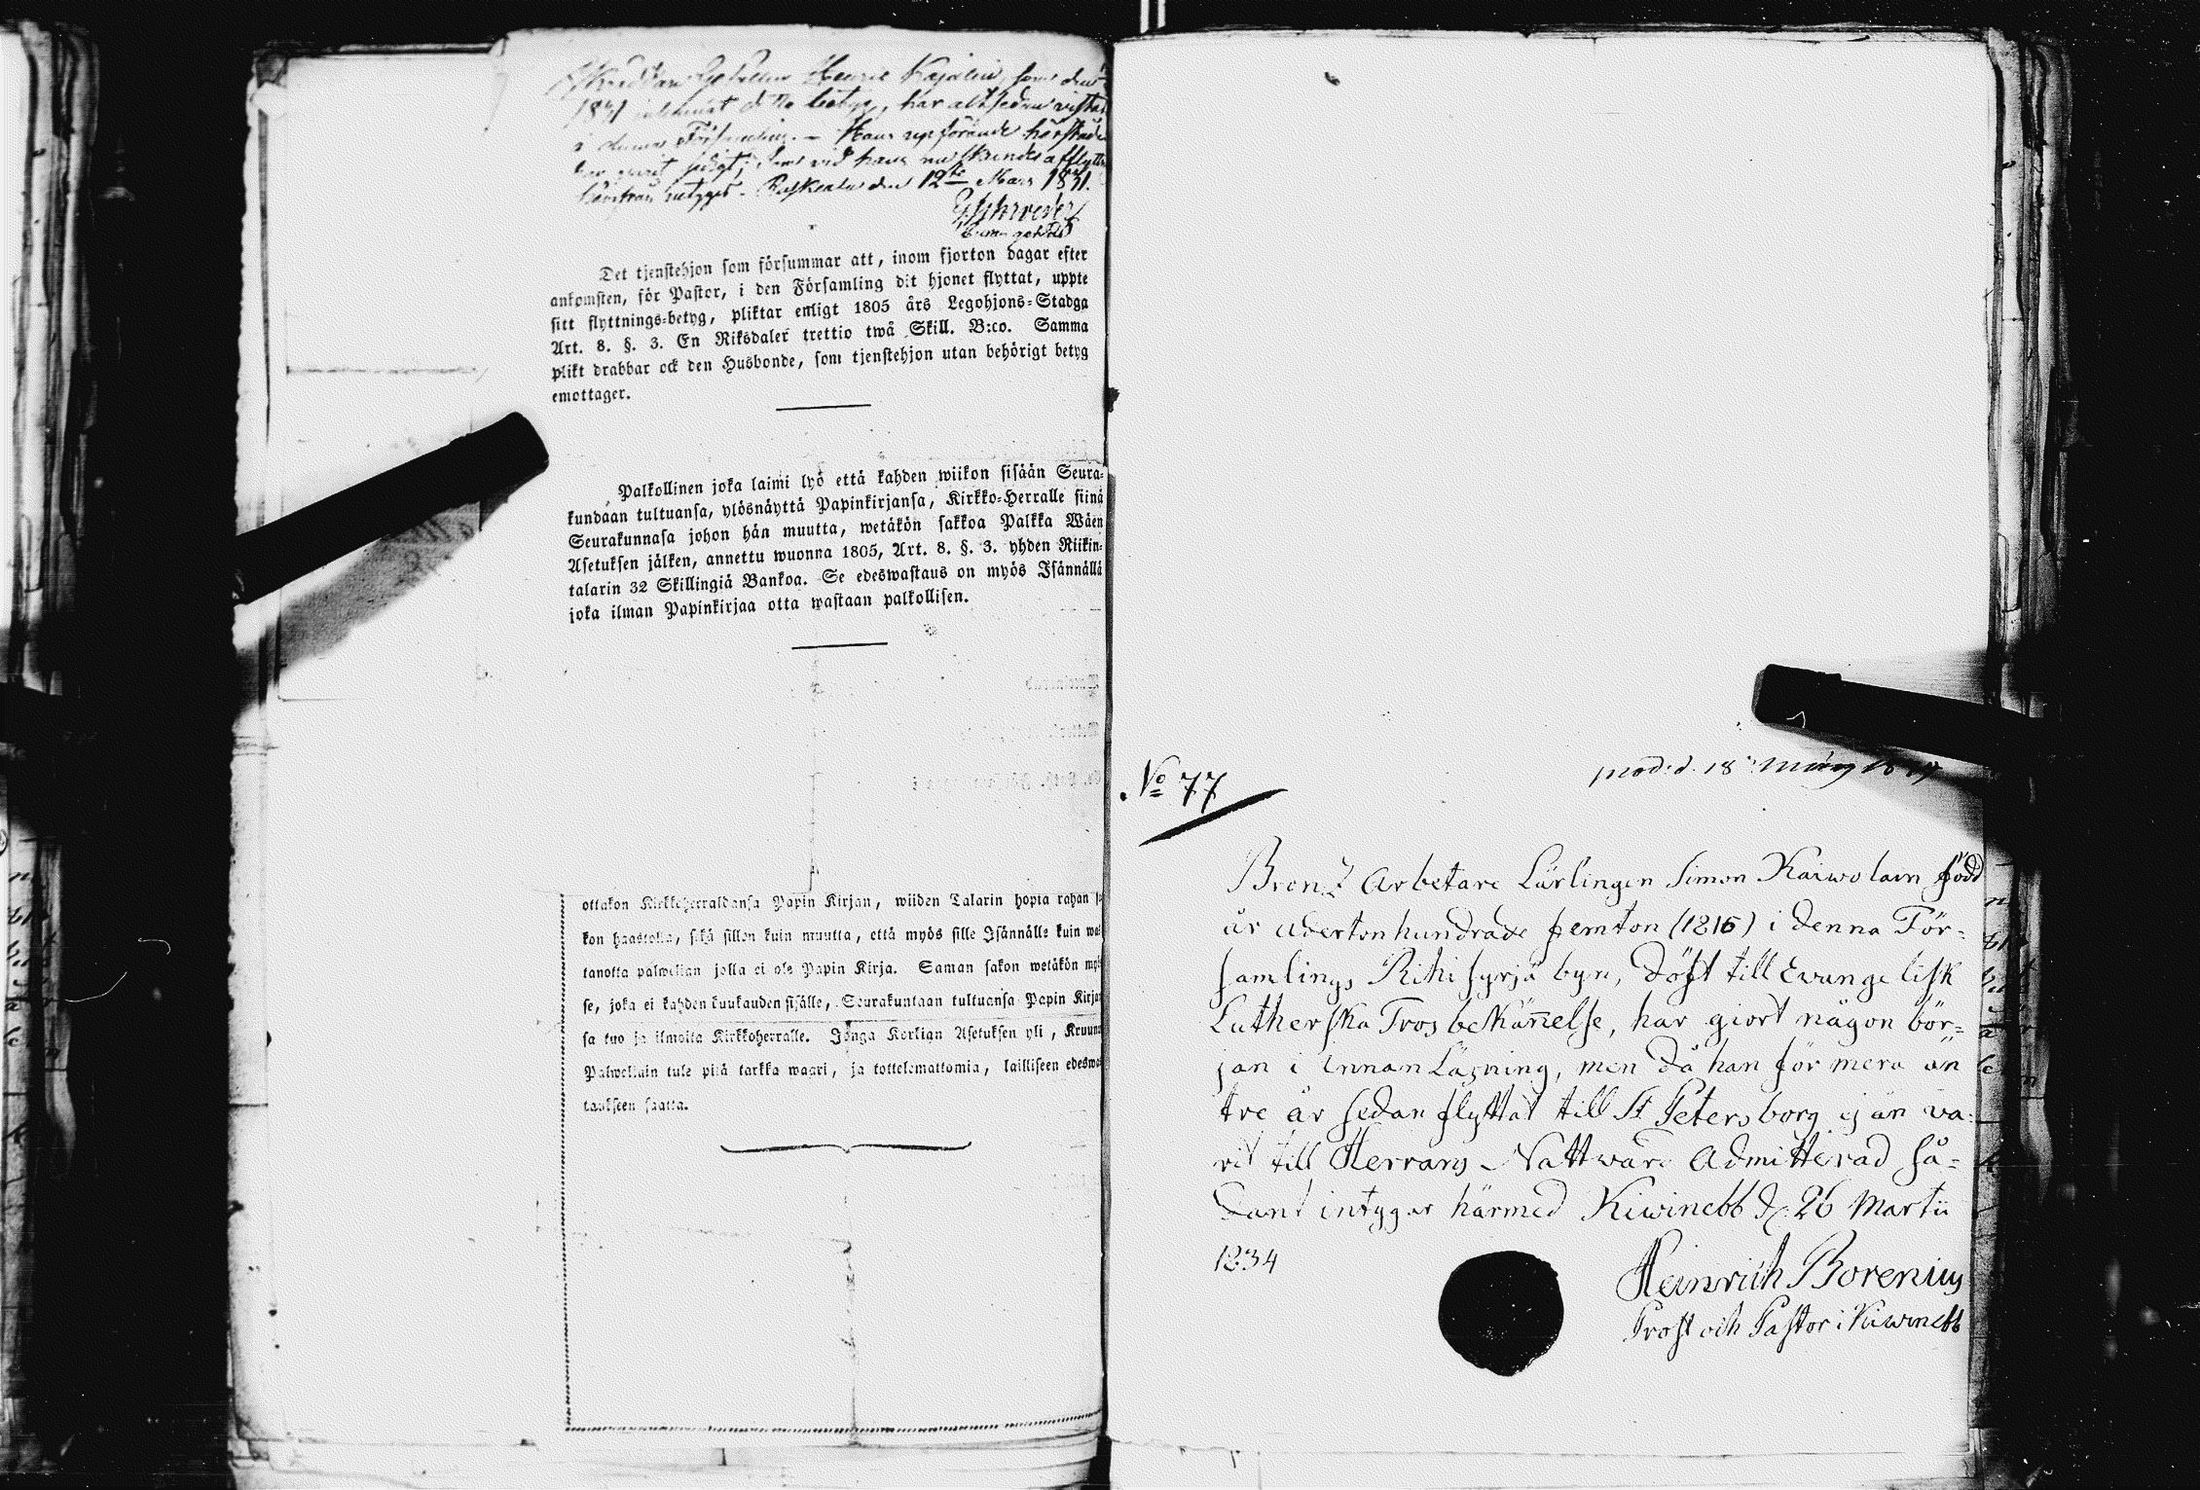 1831 detta betyg, har altsedan vistats
i denna Församling. — Hans uppförande härstädes
betygas. Ruskeala den 12te Mars 1831.
Det tjenstehjon som försummar att, inom fjorton dagar efter
ankomsten, för Pastor, i den Församling dit hjonet flyttat, uppte
sitt flyttnings=betyg, pliktar enligt 1805 års Legohjons=Stadga
Art. 8. §. 3. En Riksdaler trettio twå Skill. B:co. Samma
plikt drabbar ock den Husbonde, som tjenstehjon utan behörigt betyg
emottager.
Palkollinen joka laimi lyö että kahden wiikon sisään Seura=
kundaan tultuansa, ylösnäyttä Papinkirjansa, Kirkko=Herralle siinä
Seurakunnasa johon hän muutta, wetäkön sakkoa Palkka Wäen
Asetuksen jälken, annettu wuonna 1805, Art. 8. §. 3. yhden Riikin=
talarin 32 Skillingiä Bankoa. Se edeswastaus on myös Isännällä
joka ilman Papinkirjaa otta wastaan palkollisen.
ottakon Kirkkoherraldansa Papin Kirjan, wiiden Talarin hopia rahan
kon haastolla, sekä sillen kuin muutta, että myös sille Isännälle kuin
tanotta palwelian jolla ei ole Papin Kirja. Saman sakon wetäkön
se, joka ei kahden kuukauden sisälle, Seurakuntaan tultuansa Papin
sa tuo ja ilmoita Kirkkoherralle. Jonga Korkian Asetuksen yli,
Palweliain tule pitä tarkka waari, ja tottelemattomia, lailliseen
taukseen saatta.
No 77
prod: d. 18
Brons Arbetare Lärlingen Simon Kaiwolain född
år adertonhundrade femton (1815) i denna För=
samlings Rihisyrjä byn, döpt till Evangelisk
Lutherska Trosbekännelse, har giort någon bör=
jan i innanläsning, men då han för mera än
tre år sedan flyttat till St Petersborg ej än va=
rit till Herrans Nattward Admitterad så=
dant intygar härmed Kiwinebb d. 26 Martii
1834
Heinrich Borenius
Prost och Pastor i Kiwinebb